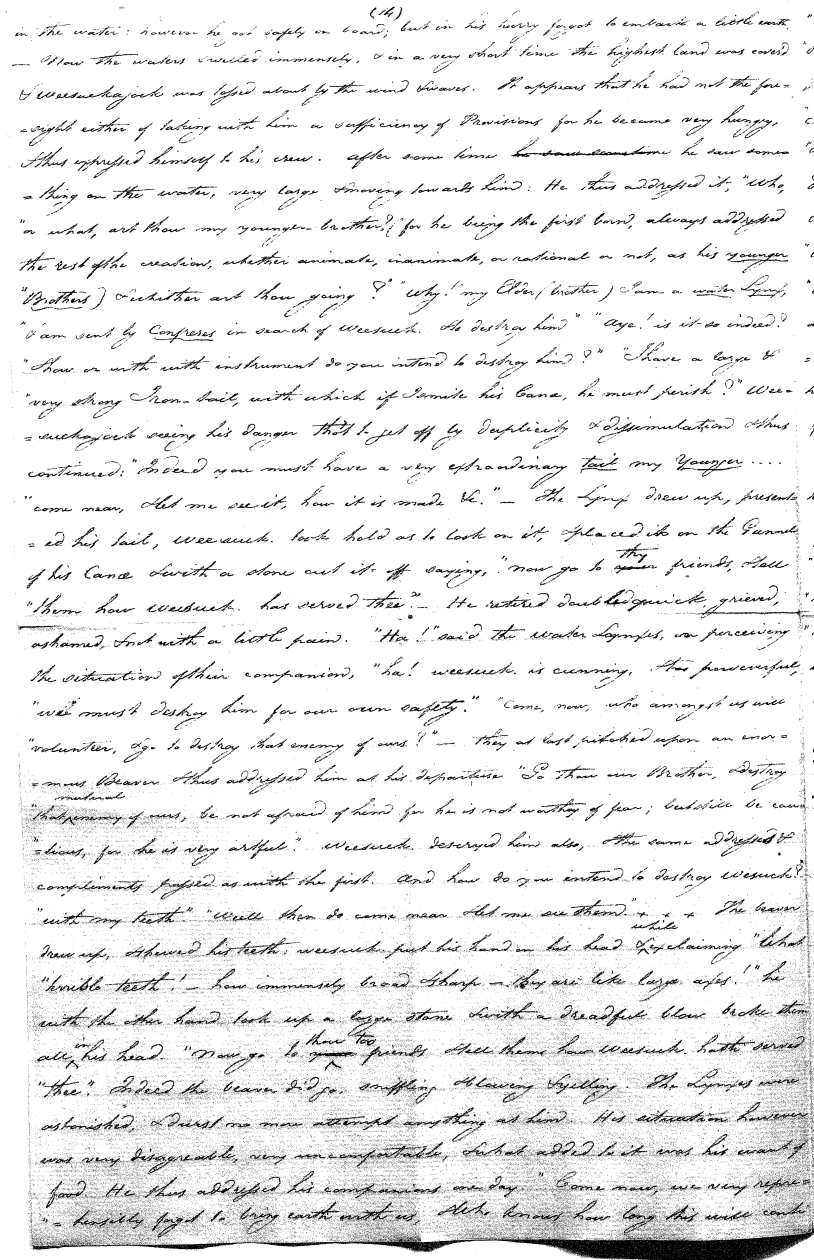 (14)
in the water: however he got safely on board; but in his hurry forgot to embark a little earth
— Now the waters swelled immensely, & in a very short time the highest land was cover'd
& Weesuckajock was tossed about by the wind & waves. It appears that he had not the fore=
=sight either of taking with him a sufficiency of Provisions for he became very hungry,
& thus expressed himself to his crew. After some time he saw sometime he saw some=
=thing on the water, very large & moving towards him: He thus addressed it, "Who,
"or what, art thou my younger brother? (for he being the first born, always addressed
the rest of the creation, whether animate, inanimate, or rational or not, as his younger
"Brothers) & whither art thou going?" "Why! my Elder (brother) I am a water Lynx,
"& am sent by Confreres in search of Weesuck. to destroy him" "Aye! is it so indeed?
"& how or with with instrument do you intend to destroy him?" "I have a large &
"very strong Iron-tail, with which if I smite his Canoe, he must perish?" Wee=
=suckajock seeing his danger tho't to get off by duplicity & dissimulation & thus
continued: "Indeed you must have a very extraordinary tail my Younger ....
"come near, & let me see it, how it is made &c." — The Lynx drew up, present=
=ed his tail, weesuck. took hold as to look on it, & placed it on the Gunnel
of his Canoe & with a stone cut it off saying, "now go to your thy friends, & tell
"them how weesuck. has served thee." — He retired doubledquick, grieved,
ashamed, & not with a little pain. "Ha!" said the water Lynxes, on perceiving
the situation of their companion, "ha! weesuck. is cunning, & too powerful,
"wee must destroy him for our own safety." "Come, now, who amongst us will
"volunteer, & go to destroy that enemy of ours?" — they at last pitched upon an enor=
=mous Beaver & thus addressed him at his departure "Go thou our Brother, & destroy
"that mutual enemy of ours, be not afraid of him for he is not worthy of fear; but still be cau=
"=tious, for he is very artful." Weesuck. descryed him also, & the same addresses &
compliments passed as with the first. And how do you intend to destroy Wesuck?
"with my teeth" "Well then do come near & let me see them." + + + The beaver
drew up, & shewed his teeth: weesuck. put his hand on his head & while exclaiming "What
"horrible teeth! — how immensely broad & sharp — they are like large axes!" he
with the other hand took up a large stone & with a dreadful blow broke them
all in his head. "Now go thou too to your friends & tell them how Weesuck. hath served
"thee". Indeed the beaver did go, sniffling & blowing & yelling. The Lynxes were
astonished, & durst no more attempt anything at him. His situation however
was very disagreable, very uncomfortable, & what added to it was his want of
food. He thus addressed his companions one day "Come now, we very repre=
"=hensibly forgot to bring earth with us, & who knows how long this will